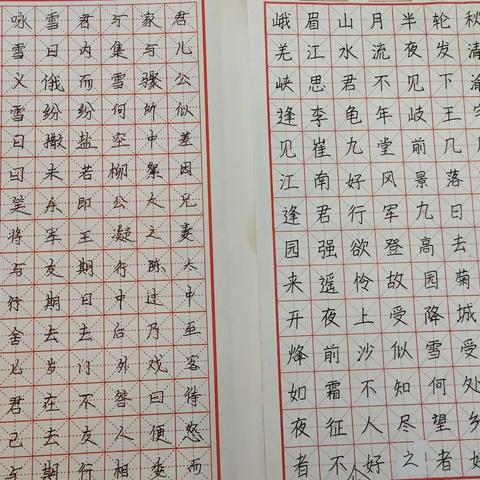 咏雪君与家君
雪日内集与儿
义俄而雪骤公
雪纷纷何所似
曰撒盐空中差
曰未若柳絮因
笑乐即公大兄
将军王凝之妻
与友期行陈太
行期日中过中
舍去去后乃至
七岁门外戏客
君在不答曰待
已去友人便怒
与期行相委而
峨眉山月半轮秋
羌江水流夜发清
峡思君不见下渝
逢李龟年岐王宅
见崔九堂前几
江南好风景落
逢君行军九日
园强欲登高去
来遥怜故园菊
开夜上受降城
烽前沙似雪受
如霜不知何处
夜征人尽望乡
者不好之者好